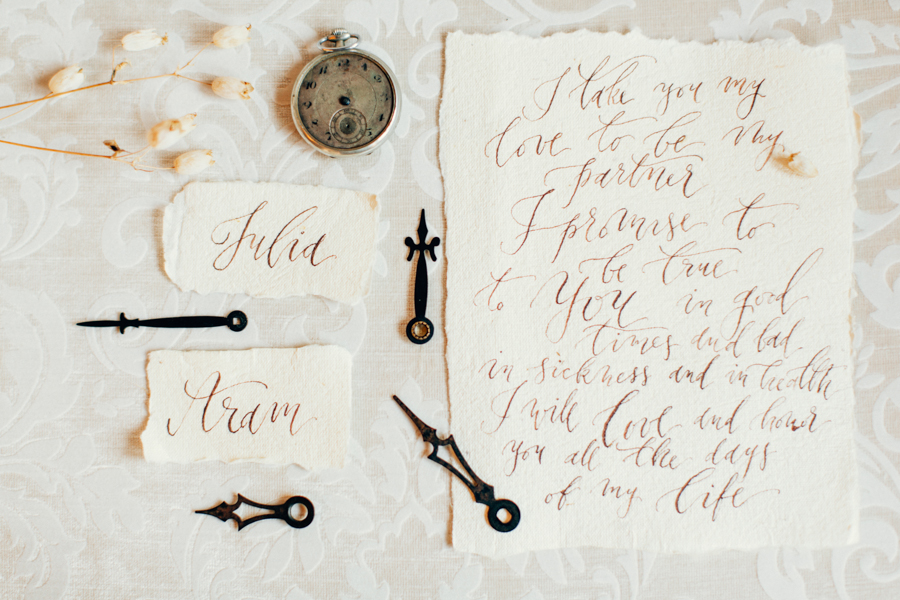 Julia
Aram
I take you my
love to be my
partner
I promise to
be true
to You in good
times and bad
in sickness and in health
I will love and honor
you all the days
of my life